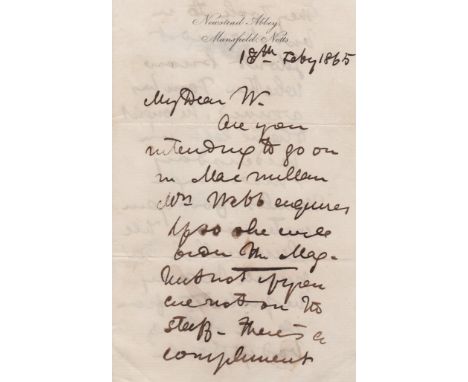 Newstead Abbey
Mansfield. Notts.
18th Feby 1865
My Dear W.
Are you
intending to go on
in Macmillan
Mrs Webb enquires
If so she will
order the Mag.
but not if you
are not on its
staff - There's a
compliment